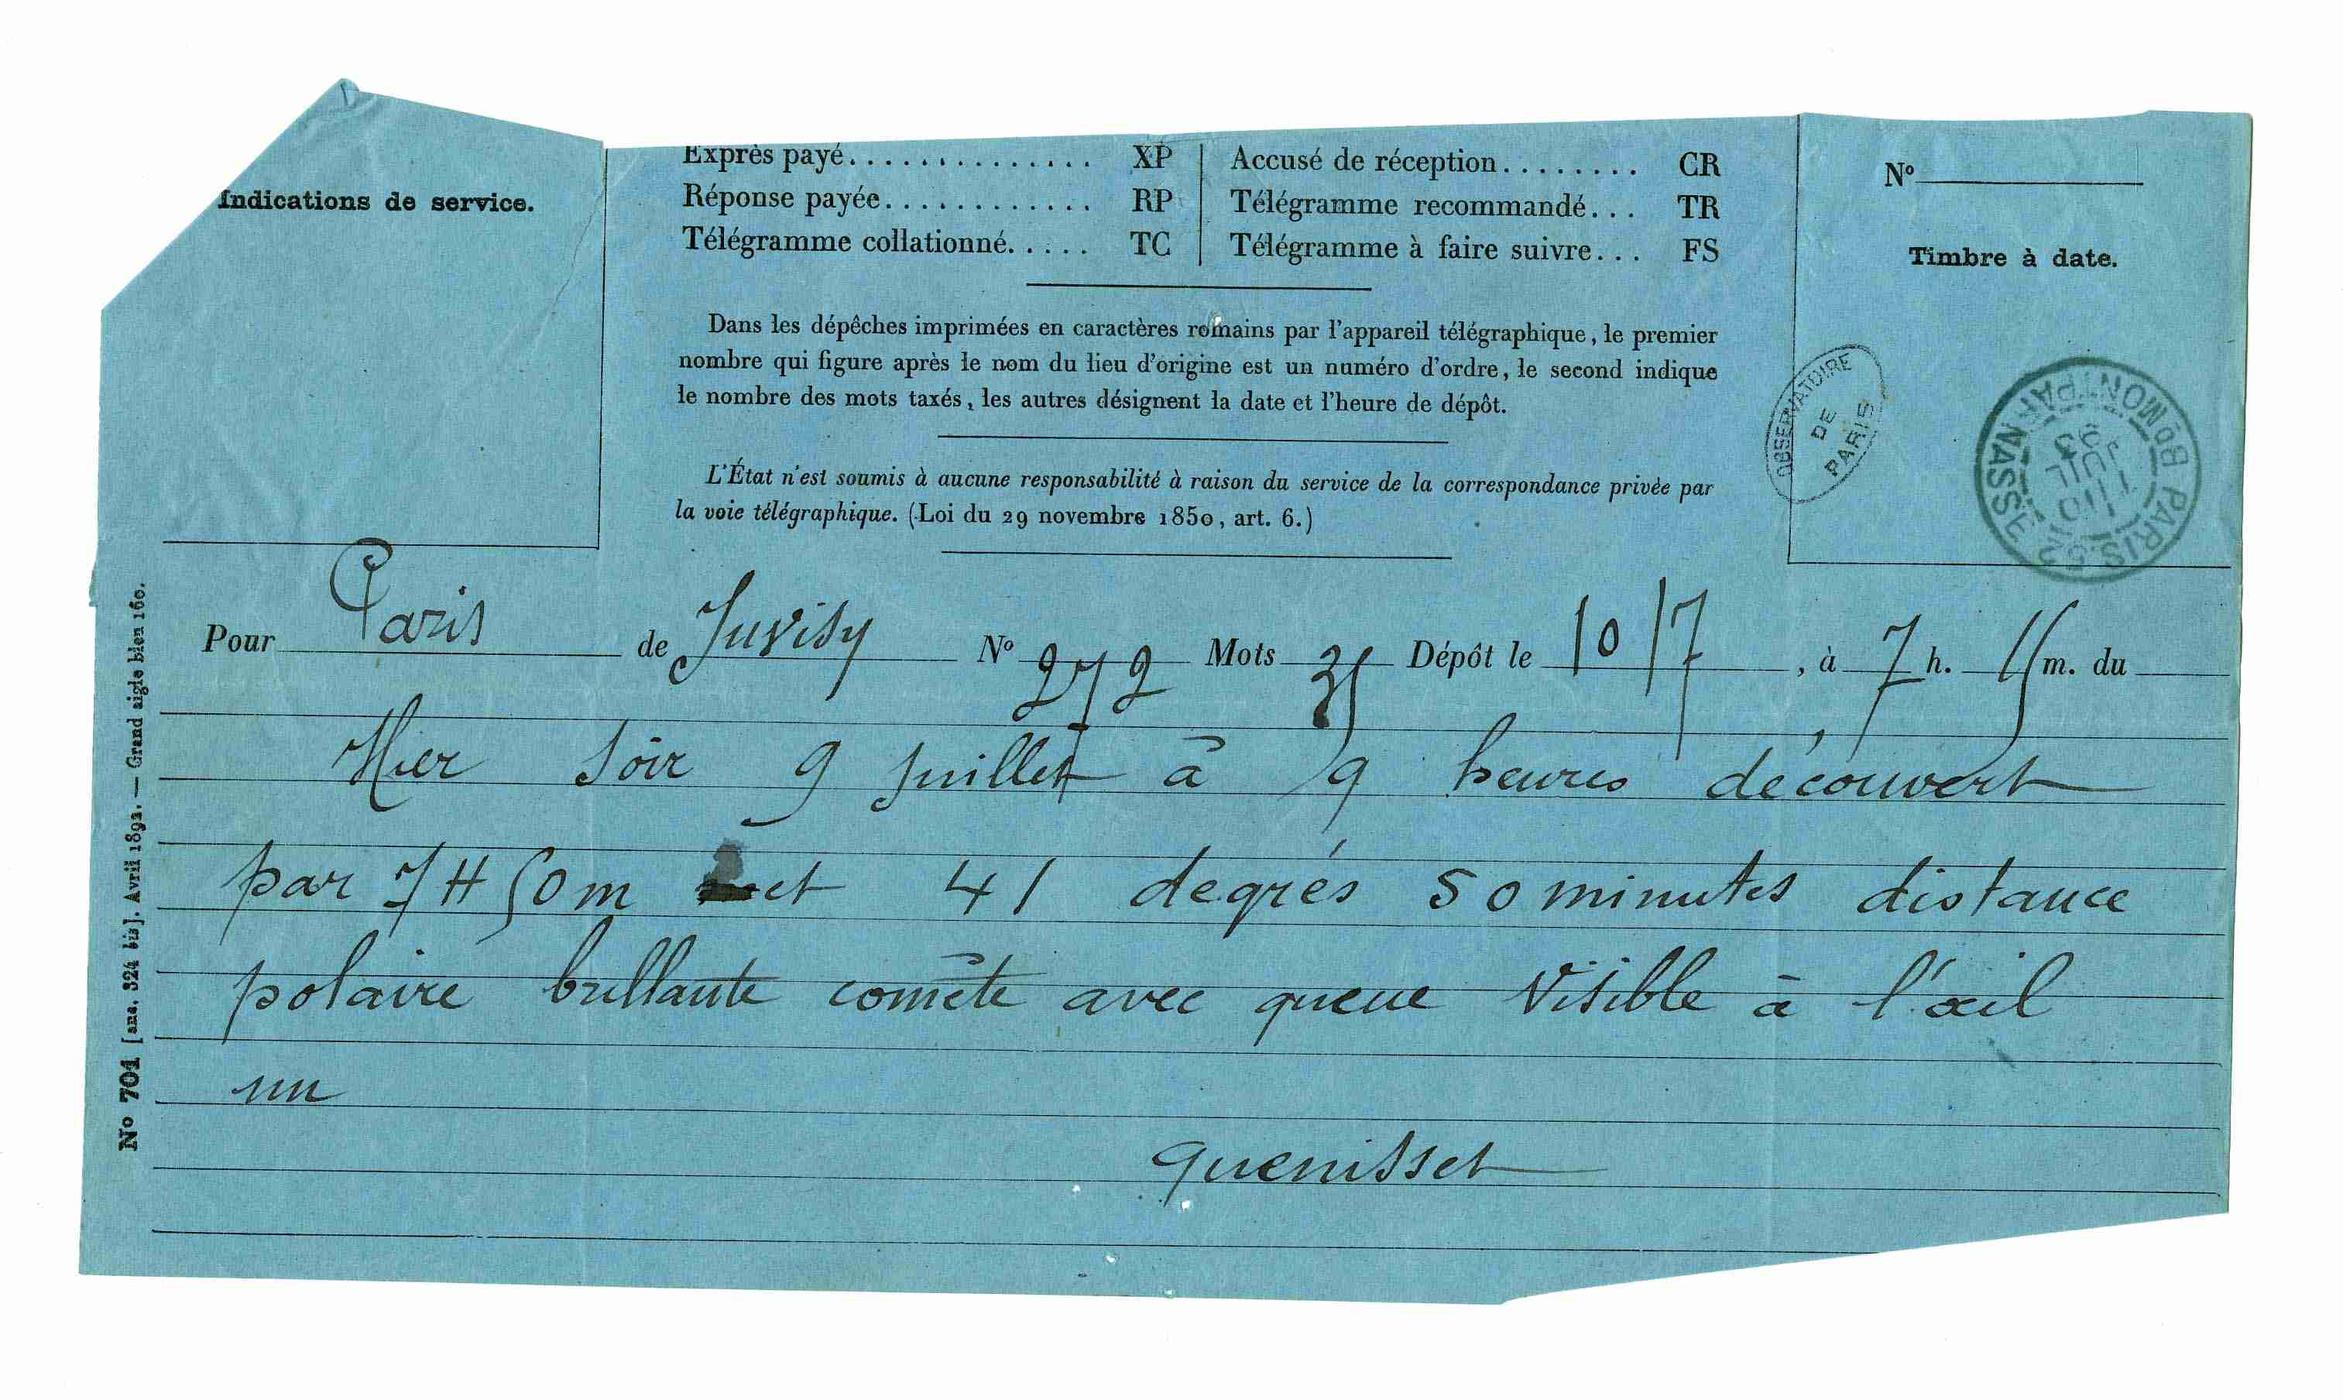 Indications de service.
Exprès payé.............. XP
Réponse payée............ RP
Télégramme collationné..... TC
Accusé de réception........ CR
Télégramme recommandé... TR
Télégramme à faire suivre... FS
Nº
Timbre à date.
Dans les dépêches imprimées en caractères romains par l'appareil télégraphique, le premier
nombre qui figure après le nom du lieu d'origine est un numéro d'ordre, le second indique
le nombre des mots taxés, les autres désignent la date et l'heure de dépôt.
L'État n'est soumis à aucune responsabilité à raison du service de la correspondance privée par
la voie télégraphique. (Loi du 29 novembre 1850, art. 6.)
OBSERVATOIRE
DE
PARIS
PARIS Bᴅ MONTPARNASSE
JUIL
93
Pour Paris de Juvisy Nº 272 Mots 35 Dépôt le 10/7, à 7 h. 15 m. du
Hier soir 9 juillet à 9 heures découvert
par 7H 50m et 41 degrés 50 minutes distance
polaire brillante comète avec queue visible à l'œil
nu
quenisset
Nº 701 [anc. 324 bis]. Avril 1892. — Grand aigle bleu 16o.